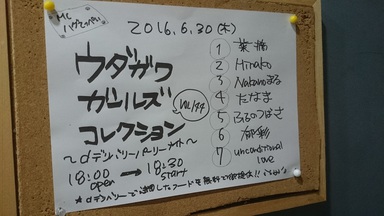 MC
2016.6.30(木)
ウダガワ
ガールズ
コレクション
VOL.144
~dデリバリーパーリーナイト~
18:00 open → 18:30 START
1
2 Hinako
3 Nakanoまる
4 たなま
5 ふるのつばさ
6
7 unconditional love
★dデリバリーで注文したフードを無料で